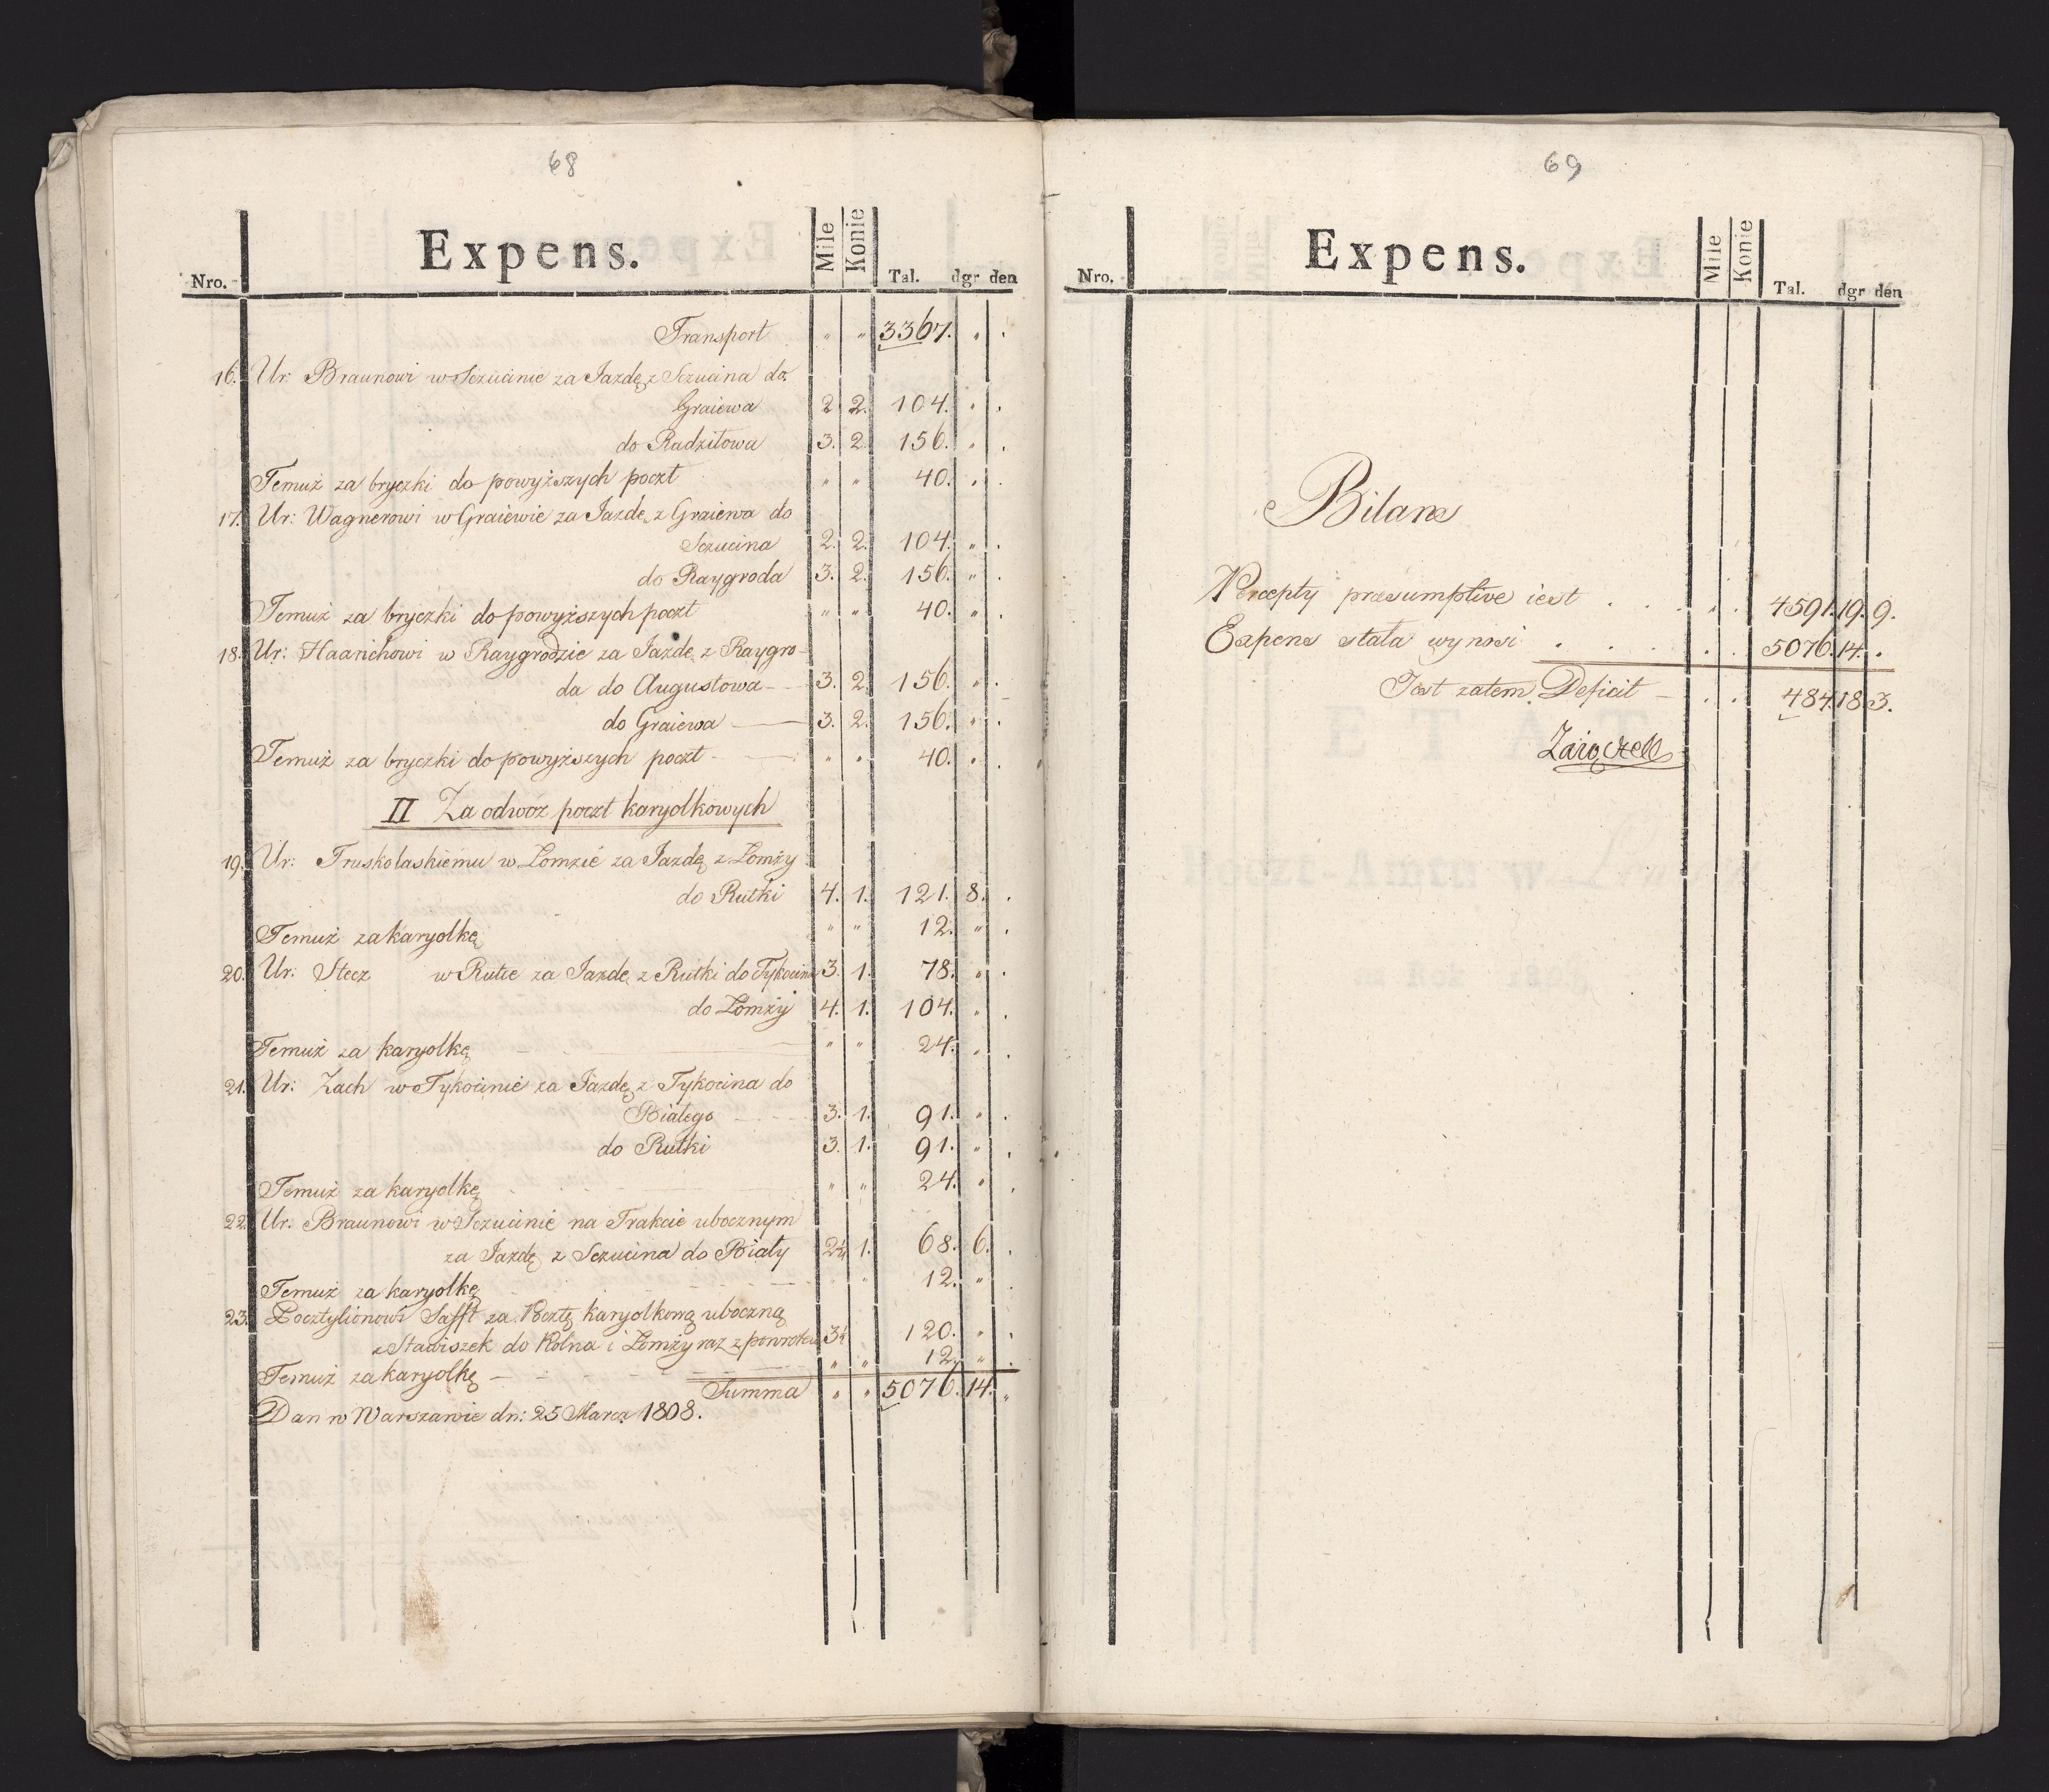 68
Nro. Expens. Mile Konie Tal. dgr den
Transport " " 3367. " .
16. Ur: Braunowi w Sczucinie za Jazdę z Sczucina do
Graiewa 2 2. 104. " .
do Radziłowa 3. 2. 156. " .
Temuż za bryczki do powyższych poczt " " 40. " .
17. Ur: Wagnerowi w Graiewie za Jazdę z Graiewa do
Sczucina 2. 2. 104. " .
do Raygroda 3. 2. 156. " .
Temuż za bryczki do powyższych poczt " " 40. " .
18. Ur: Haarichowi w Raygrodzie za Jazdę z Raygro-
da do Augustowa 3. 2. 156. " .
do Graiewa 3. 2. 156. " .
Temuż za bryczki do powyższych poczt " " 40. " .
II Za odwóz poczt karyolkowych
19. Ur: Truskolaskiemu w Łomzie za Jazdę z Łomży
do Rutki 4. 1. 121. 8. .
Temuż za karyolkę " " 12. " .
20. Ur: Stecz w Rutce za Jazdę z Rutki do Tykocina 3. 1. 78. " .
do Łomży 4. 1. 104. " .
Temuż za karyolkę " " 24. " .
21. Ur: Zach w Tykocinie za Jazdę z Tykocina do
Białego 3. 1. 91. " .
do Rutki 3. 1. 91. " .
Temuż za karyolkę " " 24. " .
22. Ur. Braunowi w Sczucinie na Trakcie ubocznym
za Jazdę z Sczucina do Biały 2¼ 1. 68. 6. .
Temuż za karyolkę " " 12. " .
23. Pocztylionowi Safft za Pocztę karyolkową uboczną
z Stawiszek do Kolna i Łomży raz z powrotem 3½ 120. " .
Temuż za karyolkę " " 12. " .
Summa " " 5076. 14. "
Dan w Warszawie dn: 25 Marca 1808.
69
Nro. Expens. Mile Konie Tal. dgr den
Bilans
Percepty præsumptive iest . . . . . 4591. 19. 9.
Expens stała wynosi . . . . . 5076. 14. .
Jest zatem Deficit . . 484. 18. 3.
Zaiączek